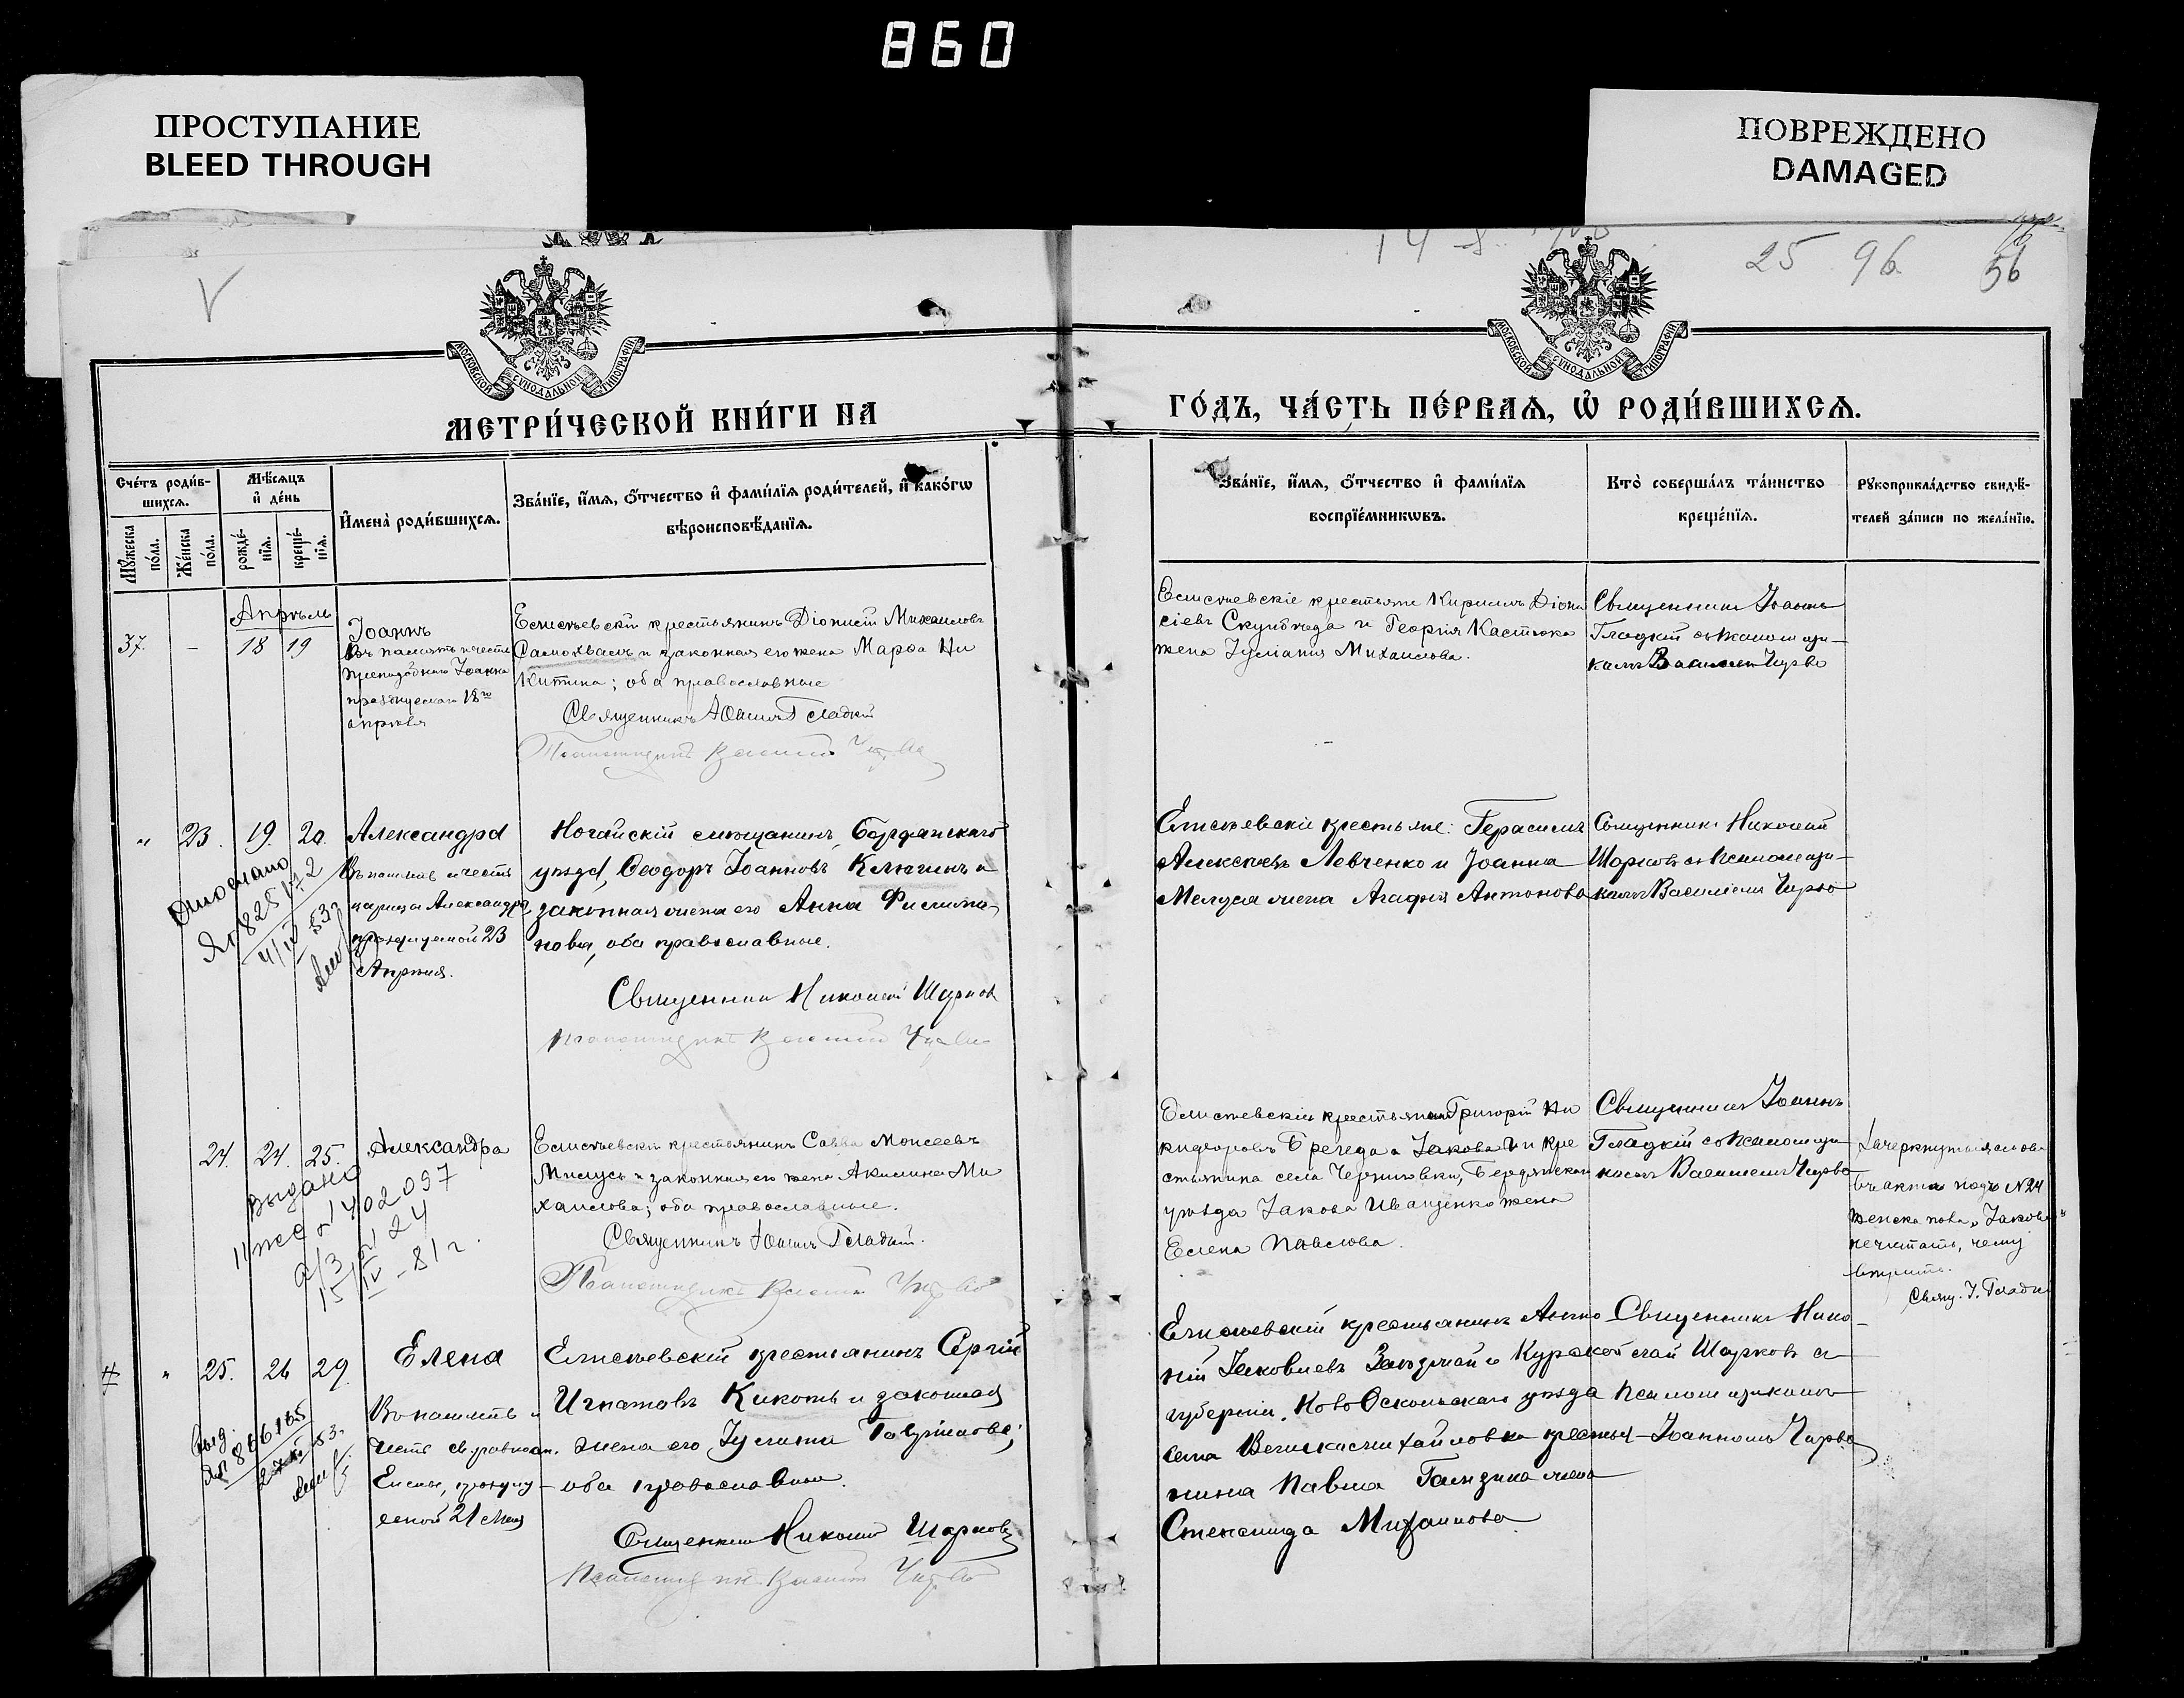 860
ПРОСТУПАНИЕ
BLEED THROUGH
ПОВРЕЖДЕНО
DAMAGED
V
25 96 56
МОСКОВСКОЙ СѴНОДАЛЬНОЙ ТИПОГРАФІИ
МОСКОВСКОЙ СѴНОДАЛЬНОЙ ТИПОГРАФІИ
МЕТРИ́ЧЕСКОЙ КНИ́ГИ НА
ГО́ДЪ, ЧА́СТЬ ПЕ́РВАѦ, Ѡ҆ РОДИ́ВШИХСѦ.
Сче́тъ роди́в-
шихсѧ.
Мꙋ́жеска по́ла.
Же́нска по́ла.
Мѣ́сѧцъ
и҆ де́нь
рожде́-
нїѧ.
креще́-
нїѧ.
И҆мена̀ роди́вшихсѧ.
Зва́нїе, и҆́мѧ, ѻ҆́тчество и҆ фами́лїѧ роди́телей, и҆ како́гѡ
вѣроисповѣ́данїѧ.
Зва́нїе, и҆́мѧ, ѻ҆́тчество и҆ фами́лїѧ
воспрїе́мникѡвъ.
Кто̀ соверша́лъ та́инство
креще́нїѧ.
Рꙋкоприкла́дство свидѣ́-
телей за́писи по жела́нїю.
Апрѣль
37. - 18 19
Іоаннъ
Въ память и честь
преподобнаго Іоанна
празднуемаго 18го
апрѣля
Елисѣевскій крестьянинъ Діонисій Михаиловъ
Самохвалъ и законная его жена Марѳа Ни
китина; оба православные
Священникъ Іоаннъ Гладкій
Псаломщикъ Василій Чирво
Елисѣевскіе крестьяне Кириллъ Діони
сіевъ и Георгія Кастюка
жена Іуліанія Михаилова.
Священникъ Іоаннъ
Гладкій съ псаломщи-
комъ Василіемъ Чирво
" 23. 19. 20.
Александра
Въ память и честь
царицы Александры,
празднуемой 23
Апрѣля.
Ногайскій мѣщанинъ, Бердянскаго
уѣзда, Ѳеодоръ Іоанновъ Клюгинъ и
законная жена его Анна Филимо-
нова, оба православные.
Священникъ Николай Шарковъ
Псаломщикъ Василій Чирво
Елисѣевскіе крестьяне: Герасимъ
Алексѣевъ Левченко и Іоанна
Мелуса жена Агафія Антонова
Священникъ Николай
Шарковъ съ псаломщи-
комъ Василіемъ Чирво
24. 24. 25.
Александра
Выдано
Елисѣевскій крестьянинъ Савва Моисеевъ
Милусь и законная его жена Акилина Ми
хаилова; оба православные.
Священникъ Іоаннъ Гладкій.
Псаломщикъ Василій Чирво
Елисѣевскій крестьянинъ Григорій Ни
кифоровъ Брегеда а Іакова и кре
стьянина села Черниговки, Бердянскаго
уѣзда Іакова Иващенко жена
Елена Павлова.
Священникъ Іоаннъ
Гладкій съ псаломщи
комъ Василіемъ Чирво
Зачеркнутыя слова
въ актѣ подъ №24
женска пола „Іакова"
нечитать, чему
вѣрить.
Свящ. І. Гладкій
" 25. 26 29.
Елена
Въ память и
честь св. равноап.
Елены, праздну-
емой 21 Мая
Елисѣевскій крестьянинъ Сергій
Игнатовъ Кикоть и законная
жена его Іулита Гавріилова;
оба православные.
Священникъ Николай Шарковъ
Псаломщикъ Василій Чирво
Елисѣевскій крестьянинъ Анто
ній Іаковлевъ и Курской
губерніи, Ново Оскольскаго уѣзда
села Великомихайловки крестья-
нина Павла жена
Степанида Михаилова.
Священникъ Нико
лай Шарковъ съ
псаломщикомъ
Іоанномъ Чирво